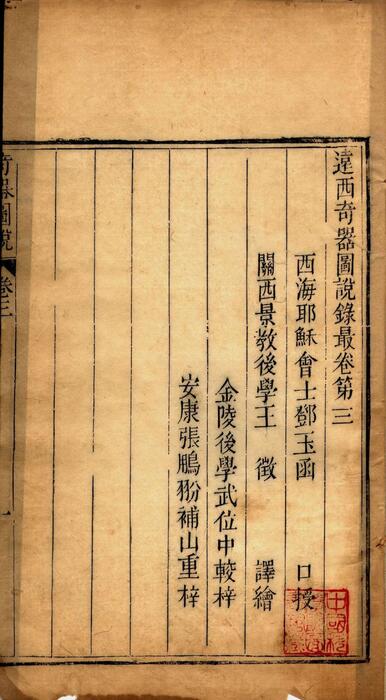 遠西奇器圖說錄最卷第三
西海耶穌會士鄧玉函 口授
關西景教後學王 徵 譯繪
金陵後學武位中較梓
安康張鵬翂補山重梓
奇器圖說 卷三 一